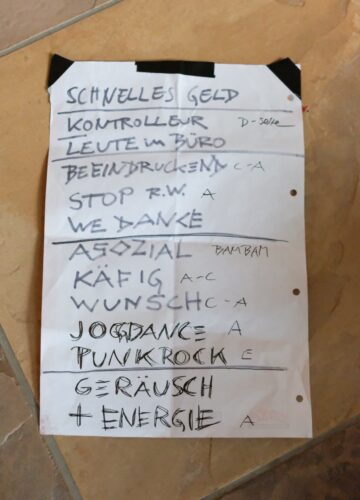 SCHNELLES GELD
KONTROLLEUR D-Saite
LEUTE im BÜRO
BEEINDRUCKEND C-A
STOP R.W. A
WE DANKE
ASOZIAL BAMBAM
KÄFIG A-C
WUNSCH C-A
JOGDANCE A
PUNKROCK E
GERÄUSCH
+ ENERGIE A